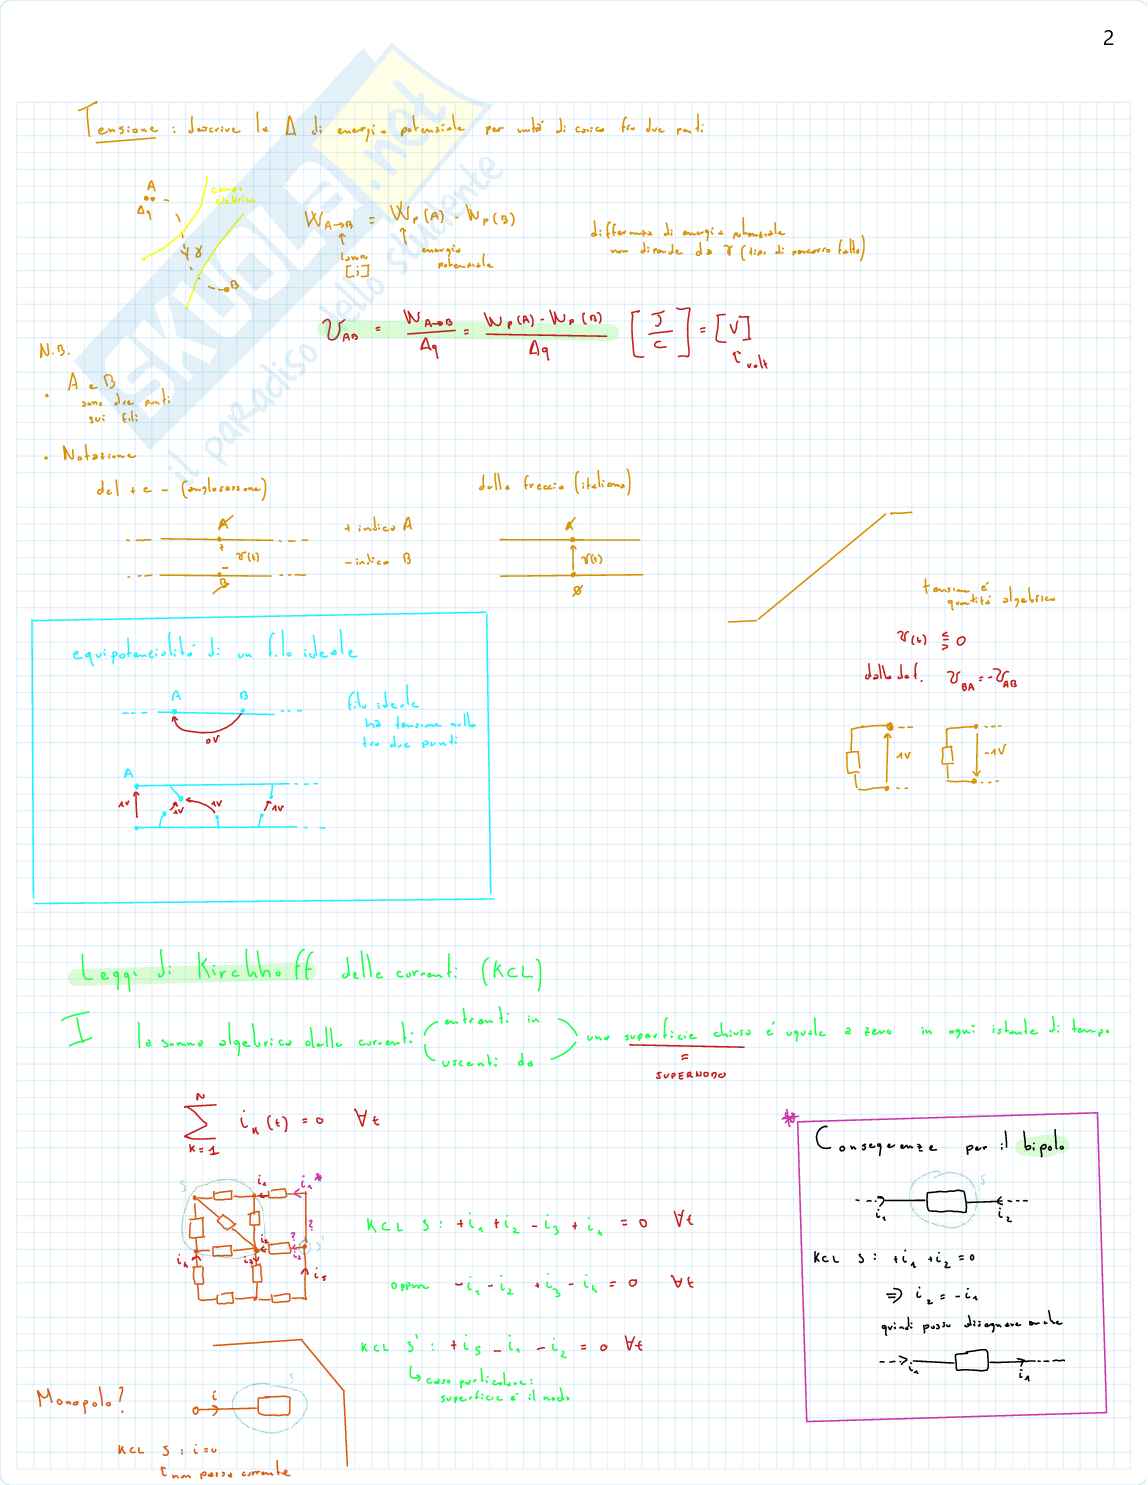 2
SKUOLA.net
il paradiso dello studente
Tensione : descrive la Δ di energia potenziale per unità di carica fra due punti
campo
elettrico
A
Δq
γ
B
W A→B = Wp(A) - Wp(B)
lavoro
[j]
energia
potenziale
differenza di energia potenziale
non dipende da γ (tipo di percorso fatto)
V AB = W A→B / Δq = Wp(A) - Wp(B) / Δq [J/C] = [V]
volt
N.B.
• A e B
sono due punti
sui fili
• Notazione
del + e - (anglosassone)
dalla freccia (italiana)
A
+
v(t)
-
B
+ indica A
- indica B
A
v(t)
B
tensione è
quantità algebrica
v(t) ⋚ 0
dalla def. V BA = -V AB
1V
-1V
equipotenzialità di un filo ideale
A B
0V
filo ideale
ha tensione nulla
tra due punti
A
1V 1V 1V 1V
Leggi di Kirchhoff delle correnti (KCL)
I la somma algebrica delle correnti
entranti in
uscenti da
una superficie chiusa è uguale a zero in ogni istante di tempo
=
SUPERNODO
N
∑ i k (t) = 0 ∀t
K=1
S
i1
i1 *
?
i2
?
i2
S'
i4
i3
i5
KCL S : +i1 +i2 -i3 +i4 = 0 ∀t
oppure -i1 -i2 +i3 -i4 = 0 ∀t
KCL S' : +i5 -i1 -i2 = 0 ∀t
↳ caso particolare:
superficie è il nodo
Monopolo?
i
S
KCL S : i=0
non passa corrente
*
Conseguenze per il bipolo
S
i1
i2
KCL S : +i1 +i2 =0
⇒ i2 = -i1
quindi posso disegnare anche
i1
i1